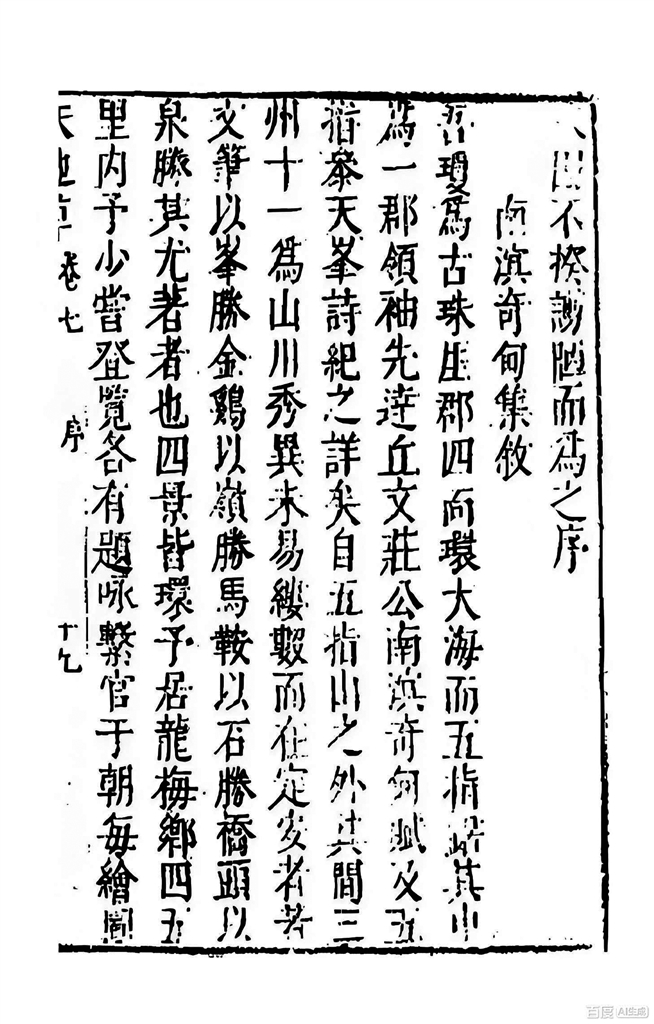 不揆謭陋而為之序
南溟奇甸集敘
吾瓊為古珠崖郡四面環大海而五指踞其中
為一郡領袖先達丘文莊公南溟奇甸賦及五
指參天峯詩紀之詳矣自五指山之外其間三
州十一為山川秀異未易縷數而在定安者若
文筆以峯勝金鷄以嶺勝馬鞍以石勝橋頭以
泉勝其尤著者也四景皆環予居龍梅鄉四五
里内予少嘗登覽各有題咏繫官于朝每繪圖
天池草卷七 序 十九
百度 AI生成